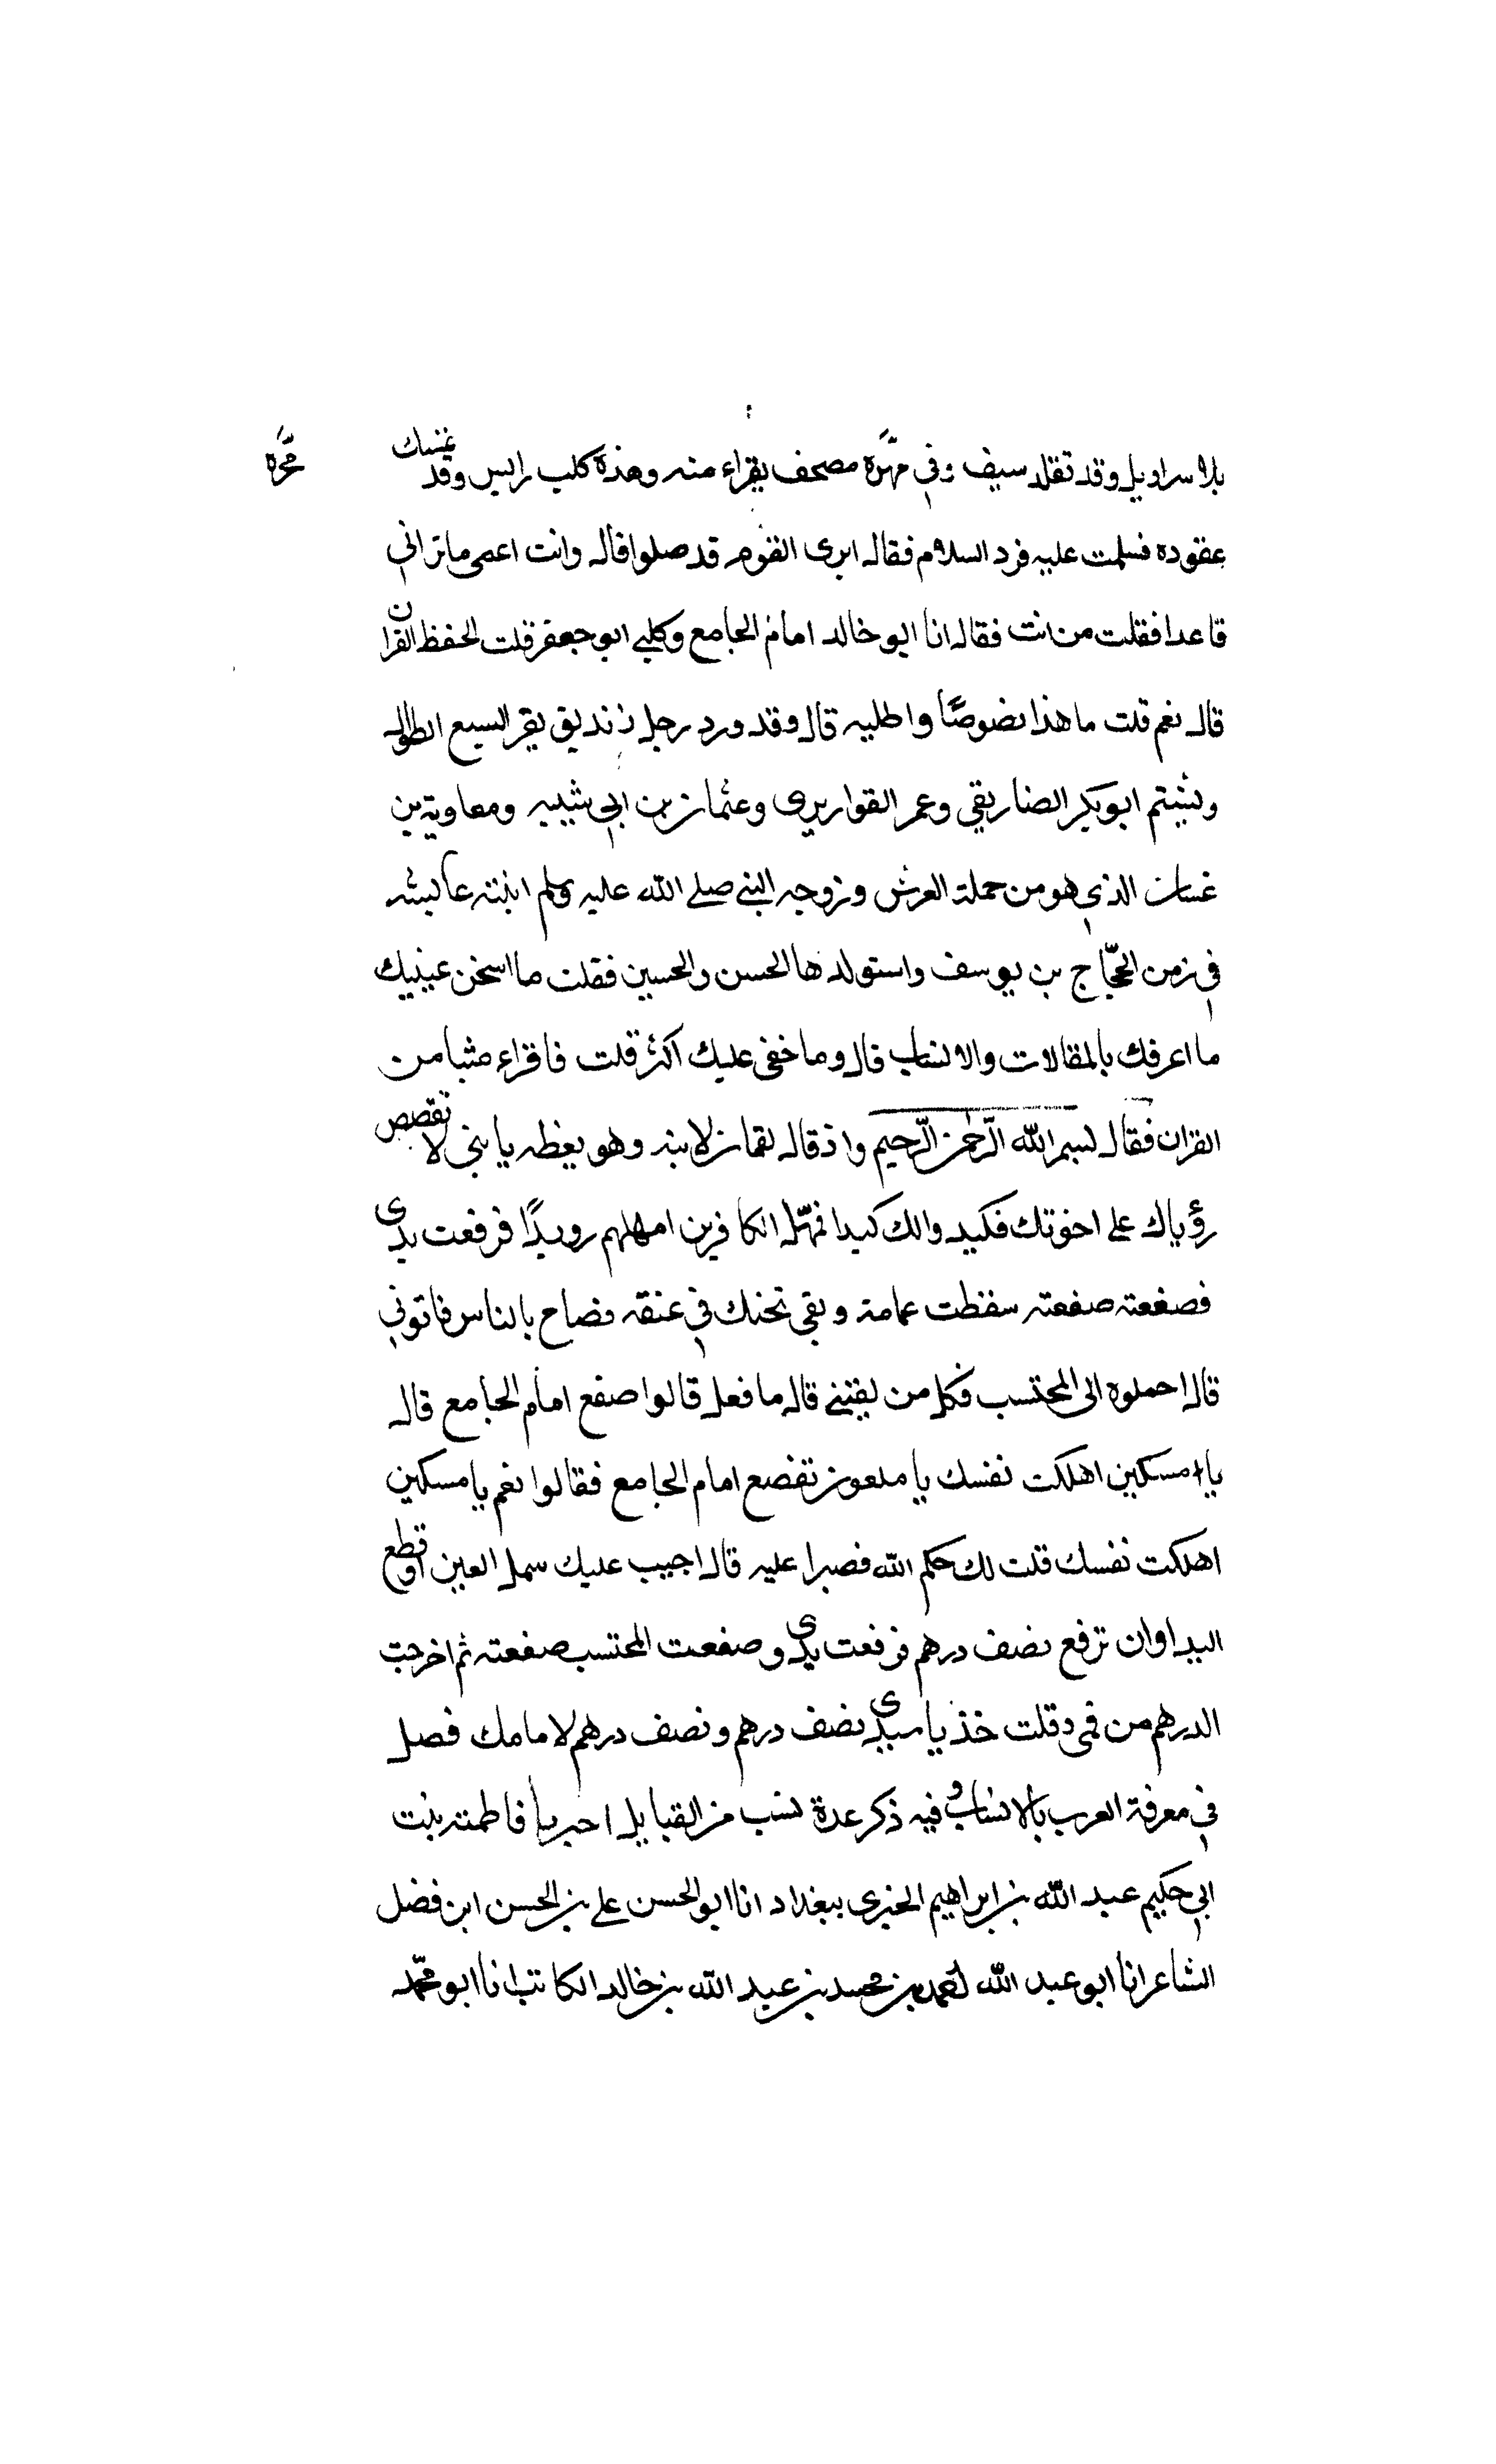 بلا سراويل وقد تقلد سيف وفي مهّره مصحف يقراء منه وهذه كلب رابس وقد تمسك
عقوده فسلمت عليه فرد السلام فقال ابرى القوم قد صلوا قال وانت اعمى ما تراني
قاعدا فقلت من انت فقال انا ابو خالد امام الجامع وكلبي ابو جعفر قلت الحفظ القران
قال نعم قلت ما هذا بضوضًا واطلبه قال وقد ورد رجل زنديق يقر السبع الطوال
ويشتم ابو بكر الضاريقي وعمر القواريري وعثمان بن ابي شيبه ومعاوية بن
غسان الذي هو من حملة العرش وزوجه النبي صلى الله عليه وسلم ابنته عائشه
في زمن الحجّاج بن يوسف واستولدها الحسن والحسين فقلت ما اسخن عينيك
ما اعرفك بالمقالات والانساب قال وما خفى عليك اكثر قلت فاقراء شيا من
القران فقال بسم الله الرّحمن الرّحيم واذ قال لقمان لابنه وهو يعظه يا بني لا تقصص
رؤياك على اخوتك فكيد والك كيدا فمهّل الكافرين امهلهم رويدًا فرفعت يدى
فصفعته صفعته سقطت عمامته وبقى تحنك في عنقه فصاح بالناس فاتوني
قال احملوه الى المحتسب فكل من لقيني قال ما فعل قالوا صفع امام الجامع قال
يا مسكين اهلكت نفسك يا ملعون تفصع امام الجامع فقالوا نعم يا مسكين
اهلكت نفسك قلت لك حكم الله فصبرا عليه قال اجيب عليك سمل العين او قطع
اليد او ان ترفع نصف درهم فرفعت يدى وصفعت المحتسب صفعته ثم اخرجت
الدرهم من فمى وقلت خذ يا سيدى نصف درهم ونصف درهم لامامك فصل
في معرفة العرب بالانساب وفيه ذكر عدة نسب من القبايل اخبرنا فاطمته بنت
ابي حكيم عبد الله بن ابراهيم الخبرى ببغداد انا ابو الحسن على بن الحسن ابن فضل
الشاعر انا ابو عبد الله احمد بن محمد بن عبد الله بن خالد الكاتب انا ابو محمّد